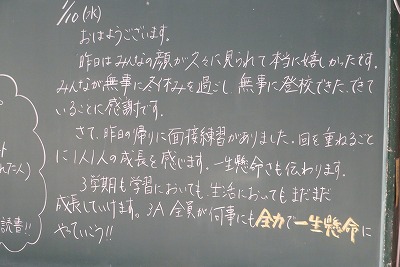 1/10(水)
おはようございます。
昨日はみんなの顔が久々に見られて本当に嬉しかったです。
みんなが無事に冬休みを過ごし、無事に登校できた、できて
いることに感謝です。
さて、昨日の帰りに面接練習がありました。回を重ねるごと
に1人1人の成長を感います。一生懸命さも伝わります。
3学期も学習においても、生活においてもまだまだ
成長していけます。3A全員が何事にも全力で一生懸命に
やっていこう!!
た人)
読書!!